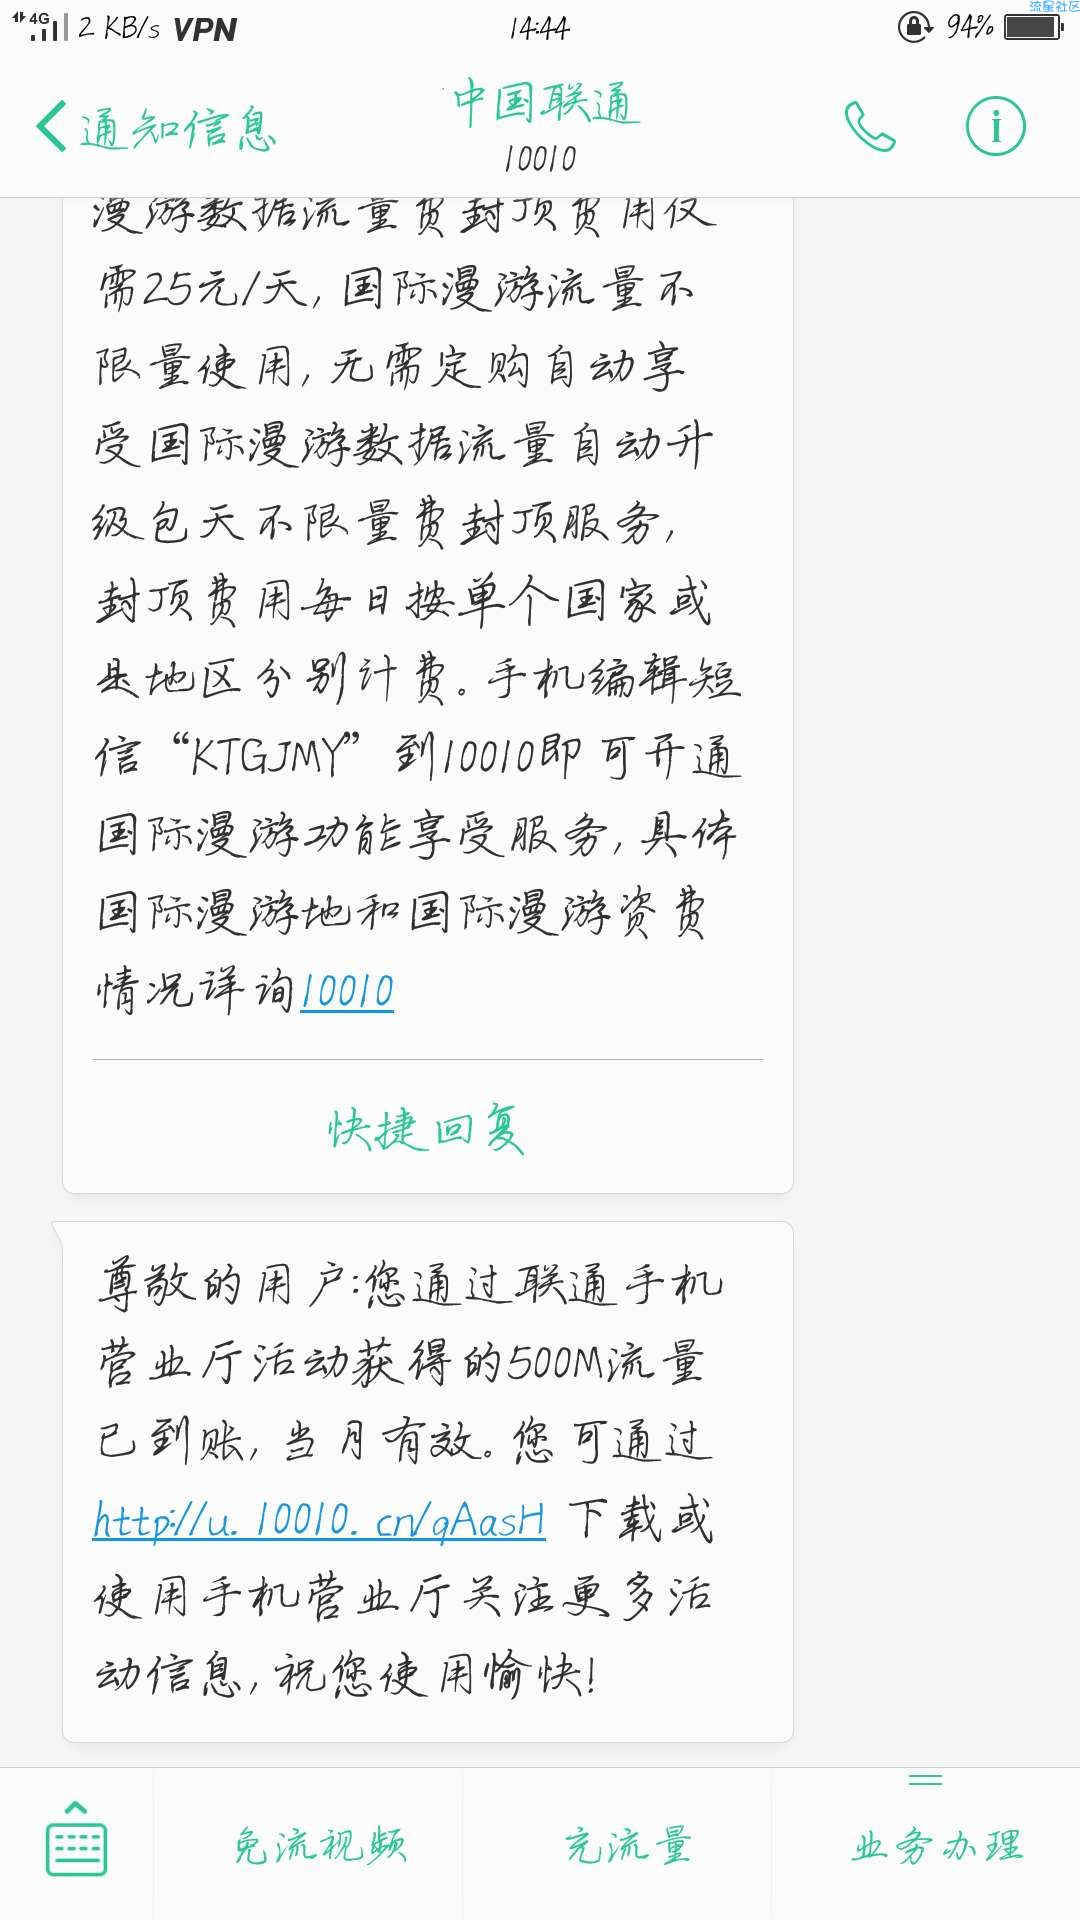 流星社区
4G 2 KB/s VPN 14:44 94%
通知信息
中国联通
10010
漫游数据流量费封顶费用仅
需25元/天, 国际漫游流量不
限量使用, 无需定购自动享
受国际漫游数据流量自动升
级包天不限量费封顶服务,
封顶费用每日按单个国家或
是地区分别计费。手机编辑短
信“KTGJMY”到10010即可开通
国际漫游功能享受服务, 具体
国际漫游地和国际漫游资费
情况详询10010
快捷回复
尊敬的用户:您通过联通手机
营业厅活动获得的500M流量
已到账, 当月有效。您可通过
http://u.10010.cn/qAasH 下载或
使用手机营业厅关注更多活
动信息, 祝您使用愉快!
免流视频
充流量
业务办理